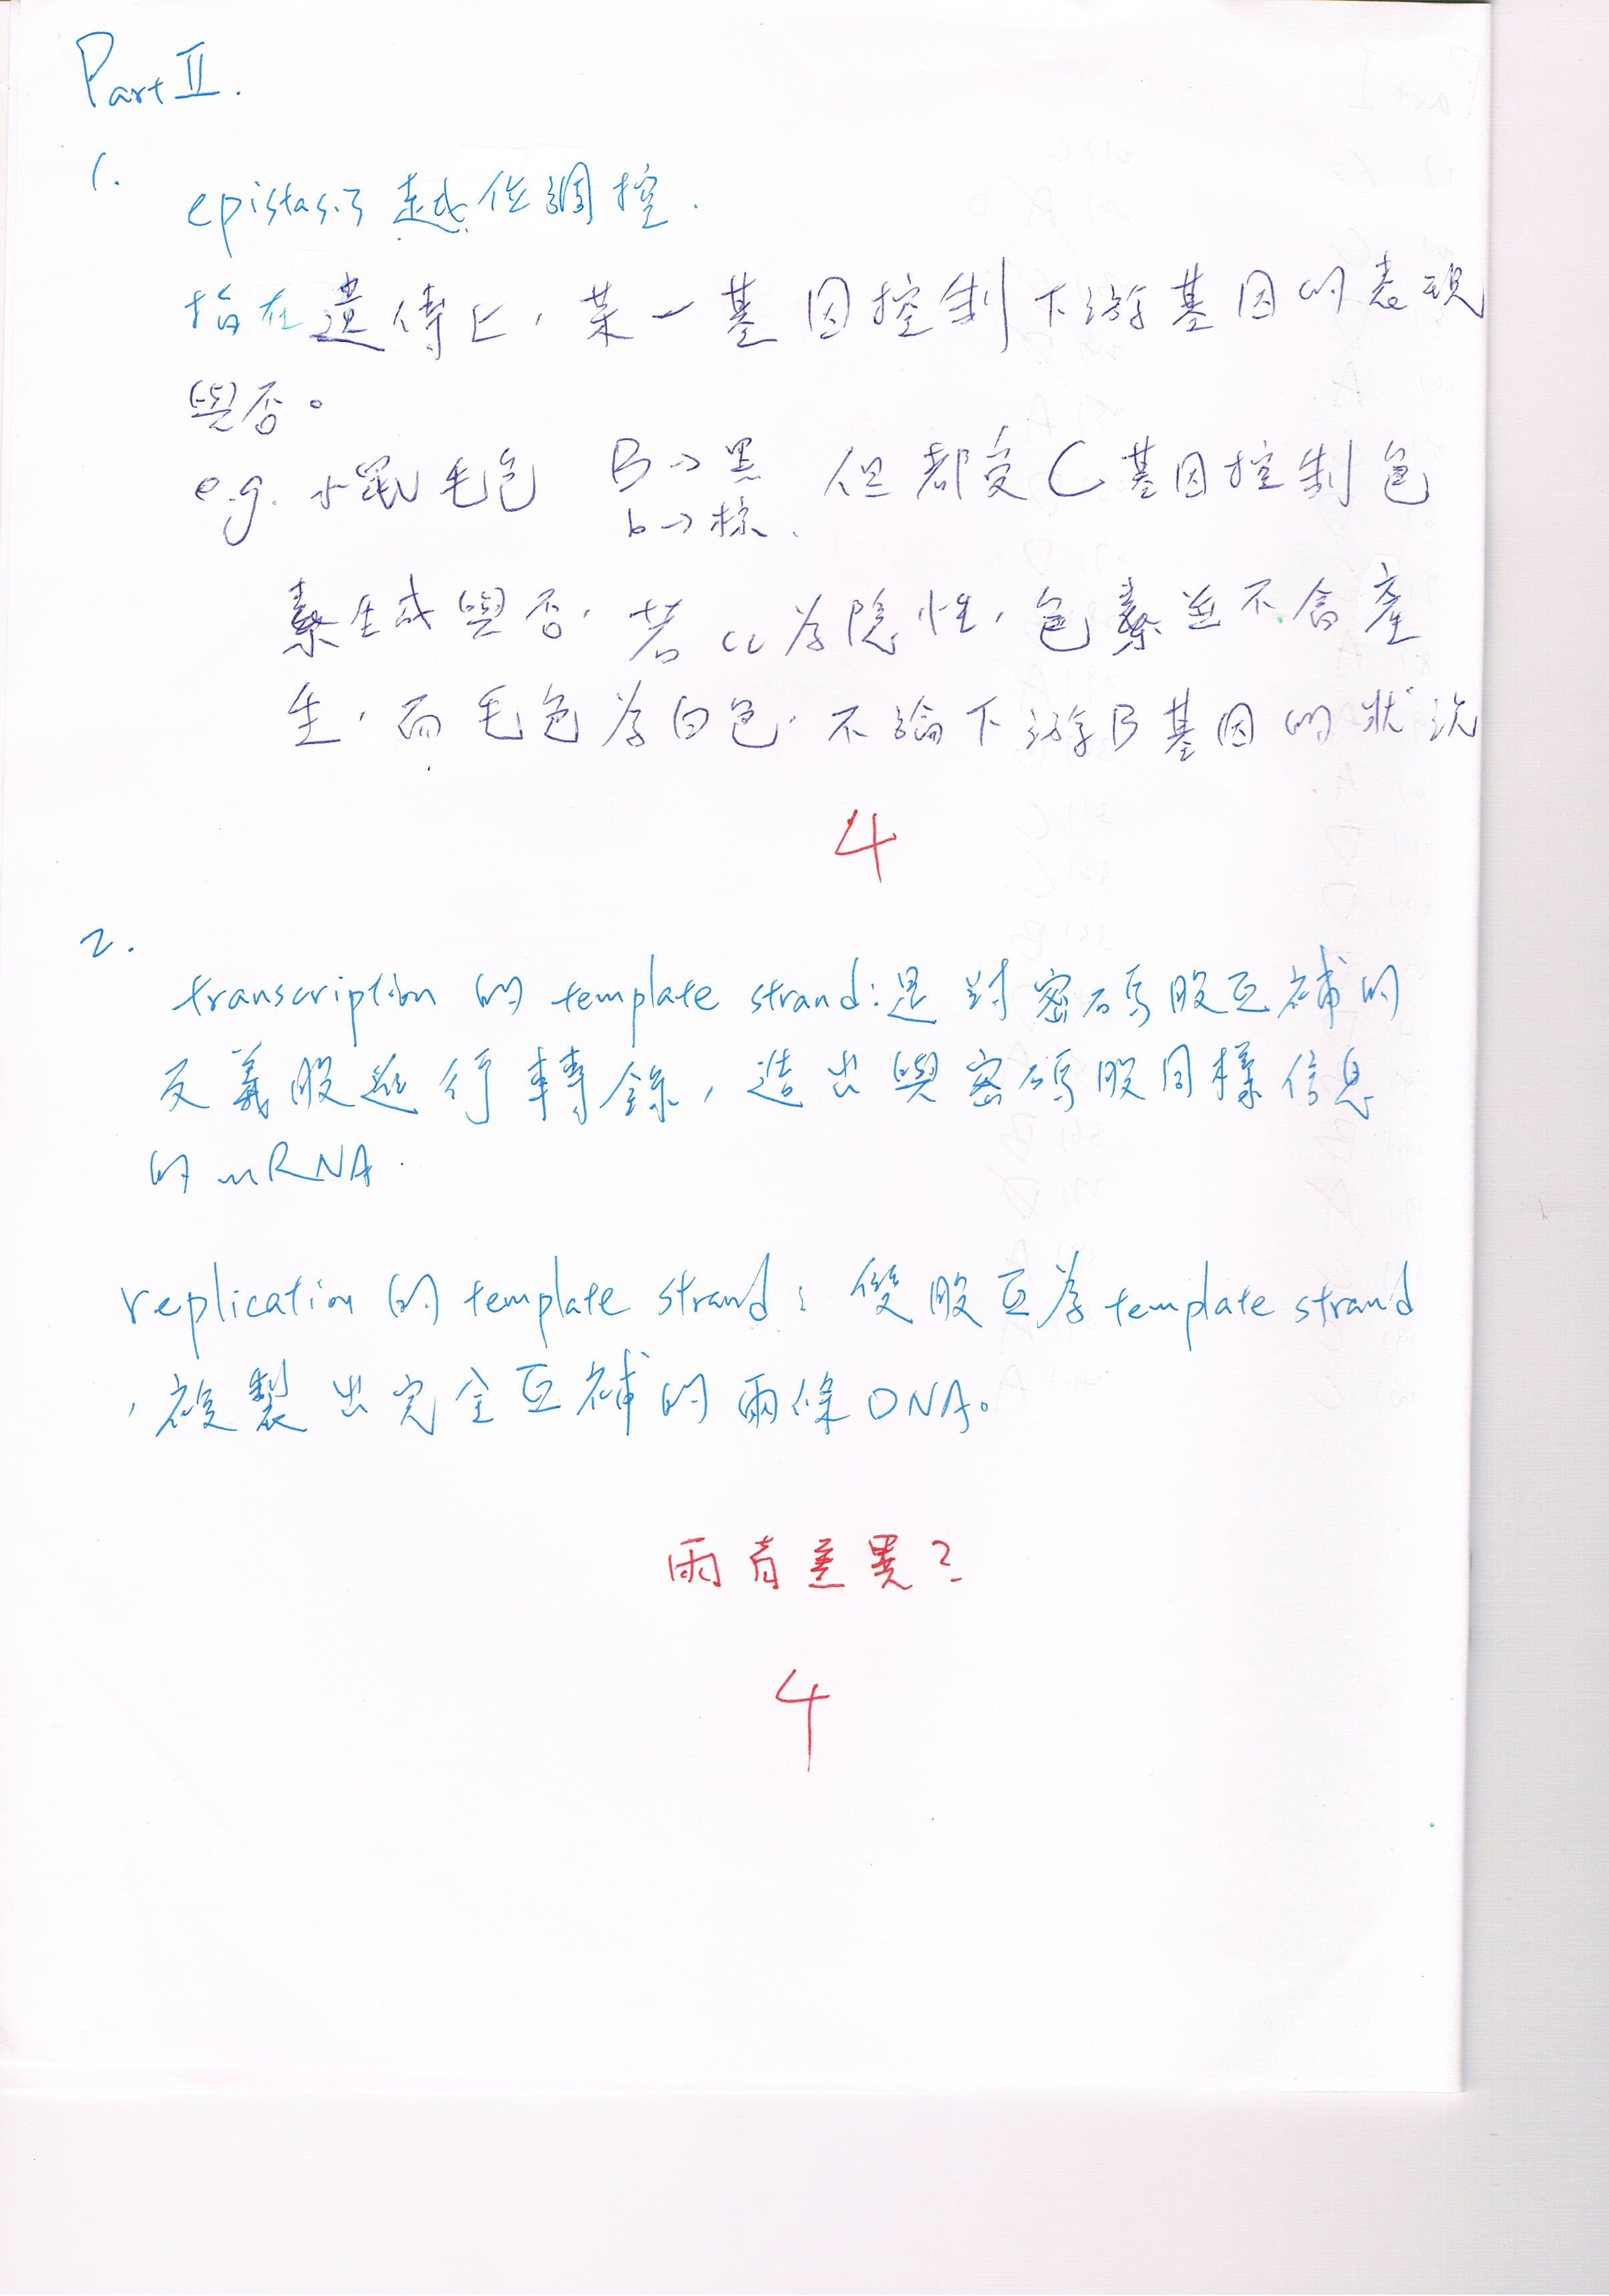 Part II.
1.
epistasis 越位調控.
指在遺傳上，某一基因控制下游基因的表現
與否。
e.g. 小鼠毛色 B→黑 但都受C基因控制色
b→棕.
素生成與否，若cc為隱性，色素並不會產
生，而毛色為白色，不論下游B基因的狀況
4
2.
transcription 的 template strand:是對密碼股互補的
反義股進行轉錄，造出與密碼股同樣信息
的mRNA.
replication 的 template strand: 雙股互為 template strand
，複製出完全互補的兩條DNA。
兩者差異？
4